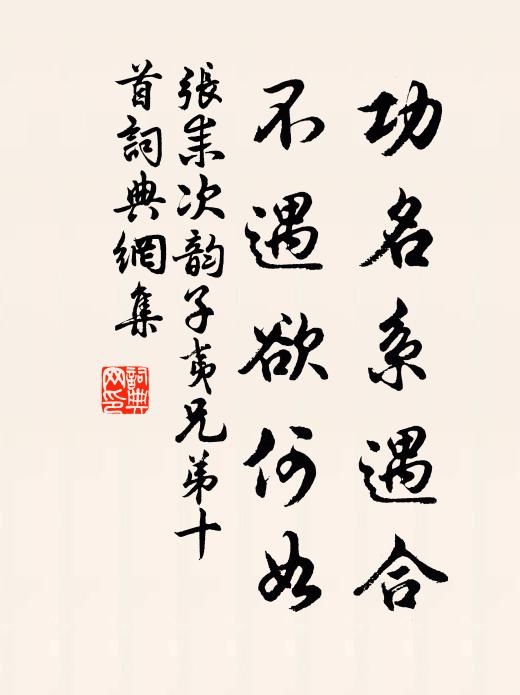 功名系遇合
不遇欲何如
張耒次韵子夷兄弟十
首詞典網集
詞典網印